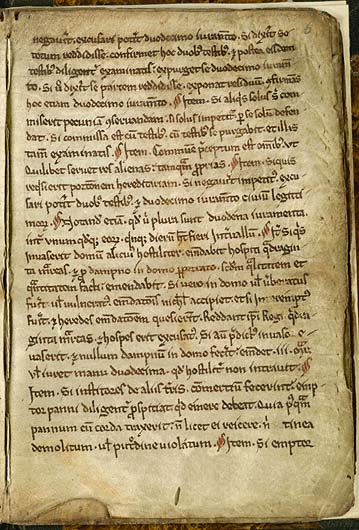 negauerit. excusari poterit duodecimo iuramento. Si dixerit se
totum reddidisse. confirmet hoc duobus testibus. & postea eisdem
testibus diligenter examinatis. expurget se duodecimo iuram
Si dixerit se partem reddidisse. exponat residuum
hoc etiam duodecimo iuramento. Item. Si aliquis solus
miserit pecuniam conseruandam. si solus impetitur. per se solum defen
dat. Si commissa est cum testibus. cum testibus se purgabit. et illis
tamen examinatis. Item. Commune preceptum est omnibus. vt
quilibet seruet res alienas. tanquam proprias. Item. Si quis
requisierit portionem hereditariam. Si negauerit impetitus. excu
sari poterit duobus testibus. & duodecimo iuramento ciuium legiti
morum. Notandum etiam. quod vbi plura sunt duodena iuramenta.
inter vnum quodque eorum. quinque dierum habet fieri interuallum. Item. Si quis
inuaserit domum alicuius hostiliter. emendabit hospiti quadragin
ta marcas. & pro dampno in domo perpetrato. secundum qualitatem et
quantitatem facti. emendabit. Si uero in domo uel uerberatus
fuerit. uel uulneratus. emendationis nichil accipiet. et si interemptus
fuerit. & heredes emendationem quesierint. Reddantur regi quadra
ginta marcas. & hospes erit excusatus. Si autem predictus inuasor e
uaserit. & nullum dampnum in domo fecerit. emendet .iii. marcas.
uel iuret manu duodecima. quod hostiliter non intrauit.
Item. Si institores de aliis terris. comercium fecerint. emp
tor panni diligenter perspiciat. quid emere debeat. Quia postquam
pannum cum corda traxerit. non licet ei reicere. nisi tinea
demolitum. uel per ordine uiolatum. Item. Si emptor